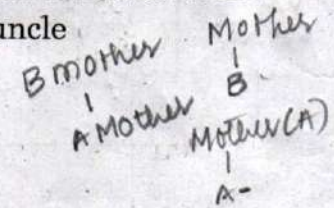 uncle
B mother
A Mother
Mother
B
Mother (A)
A-